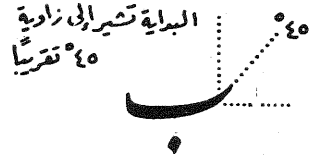 البداية تشير إلى زاوية
٤٥° تقريبًا
٤٥°
ب